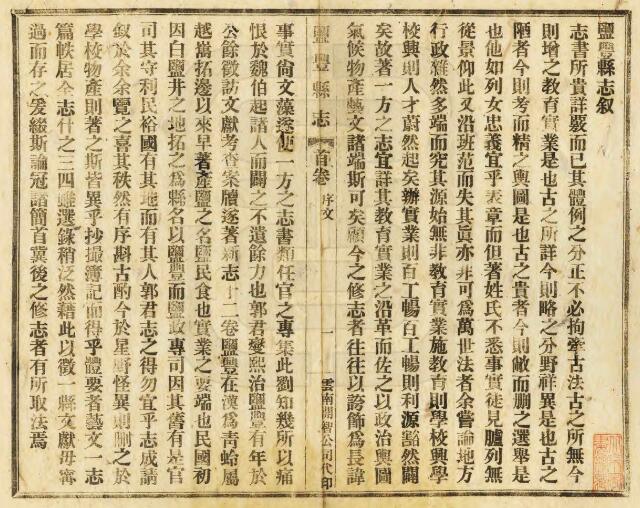 鹽豐縣志叙
志書所貴詳覈而已其體例之分正不必拘牽古法古之所無今
則增之教育實業是也古之所詳今則略之分野祥異是也古之
陋者今則考而精之輿圖是也古之貴者今則敝而刪之選舉是
也他如列女忠義宜乎表章而但著姓氏不悉事實徒見臚列無
從景仰此又沿班范而失其眞亦非可為萬世法者余嘗論地方
行政雖然多端而究其源始無非教育實業施教育則學校興學
校興則人才蔚然起矣辦實業則百工暢百工暢則利源豁然闢
矣故著一方之志宜詳其教育實業之沿革而佐之以政治輿圖
氣候物產藝文諸端斯可矣顧今之修志者往往以誇飾爲長諱
鹽豐縣志
首卷
序文
一
雲南開智公司代印
事實尚文藻遂使一方之志書類任官之專集此劉知幾所以痛
恨於魏伯起諸人而闢之不遺餘力也郭君燮熙治鹽豐有年於
公餘徵訪文獻考查案牘遂著新志十二卷鹽豐在漢爲青蛉屬
越嶲拓邊以來早著產鹽之名鹽民食也實業之要端也民國初
因白鹽井之地拓之爲縣名以鹽豐而鹽政專司因其舊有是官
司其守利民裕國有其地而有其人郭君志之得勿宜乎志成請
叙於余余覽之喜其秩然有序斟古酌今於星野怪異則刪之於
學校物產則著之斯皆異乎抄撮簿記而得乎體要者藝文一志
篇帙居全志什之三四雖選錄稍泛然藉此以徵一縣文獻毋寧
過而存之爰綴斯論冠諸簡首冀後之修志者有所取法焉